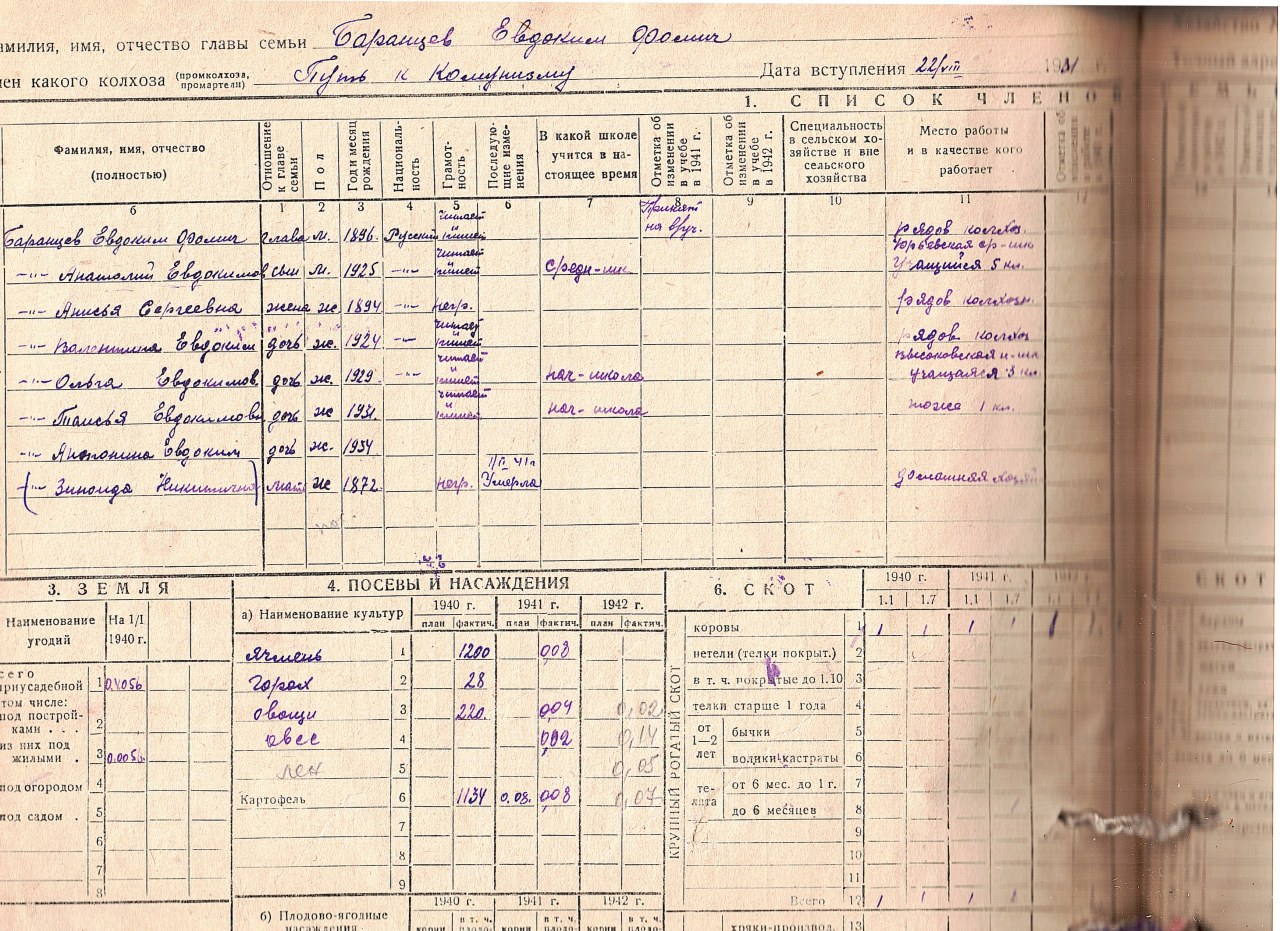 амилия, имя, отчество главы семьи Баранцев Евдоким Фомич
ен какого колхоза (промколхоза, промартели) Путь к Комунизму Дата вступления 22/VIII 1931 г.
1. СПИСОК ЧЛЕНОВ
Фамилия, имя, отчество (полностью)
Отношение к главе семьи
Пол
Год и месяц рождения
Националь-ность
Грамот-ность
Последую-щие изме-нения
В какой школе учится в на-стоящее время
Отметка об изменении в учебе в 1941 г.
Отметка об изменении в учебе в 1942 г.
Специальность в сельском хо-зяйстве и вне сельского хозяйства
Место работы и в качестве кого работает
б 1 2 3 4 5 6 7 8 9 10 11
Баранцев Евдоким Фомич глава м. 1896 Русский читает пишет на вруч. рядов колхоз.
-"- Анатолий Евдокимов сын м. 1925 -"- читает пишет средн-шк Юрьевская ср-шк Учащийся 5 кл.
-"- Анисья Сергеевна жена ж 1894 -"- негр. рядов колхозн.
-"- Валентина Евдоким дочь ж. 1924 -"- читает пишет рядов колхоз
-"- Ольга Евдокимов. дочь ж. 1929 -"- читает пишет нач-школа Высоковская н-шк учащаяся 3 кл.
-"- Таисья Евдокимовн дочь ж 1931. читает пишет нач-школа тоже 1 кл.
-"- Антонина Евдоким дочь ж. 1934
( -"- Зиноида Никитична) мать ж 1872. негр. 41г Умерла домашняя хозяй
3. ЗЕМЛЯ
Наименование угодий На 1/I 1940 г.
сего
приусадебной 1
том числе:
под построй-
ками . . . 2
из них под
жилыми . 3
под огородом 4
под садом . 5
6
7
8
4. ПОСЕВЫ И НАСАЖДЕНИЯ
а) Наименование культур 1940 г. 1941 г. 1942 г.
план фактич. план фактич. план фактич.
Ячмень 1 1200 008
Горох 2 28
овощи 3 220. 004 0,02
овес 4 002 0,14
лен 5 0,05
Картофель 6 1134 0.08. 008 0,07
7
8
9
1940 г. 1941 г. 1942 г.
б) Плодово-ягодные
насаждения
6. СКОТ
1940 г. 1941 г.
1.1 1.7 1.1 1.7
КРУПНЫЙ РОГАТЫЙ СКОТ
коровы 1 1 1 1 1 1
нетели (телки покрыт.) 2
в т. ч. покрытые до 1.10 3
телки старше 1 года 4
от 1—2 лет
бычки 5
волики-кастраты 6
те-лята
от 6 мес. до 1 г. 7
до 6 месяцев 8
9
10
11
Всего 12 1 1 1 1
хряки-производ. 13
СКОТ